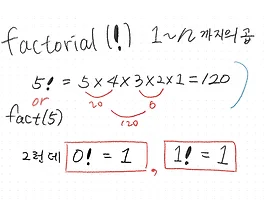 factorial (!) 1~n 까지의 곱
5! = 5×4×3×2×1 = 120
or 20 6
fact(5) 120
그런데 0! = 1 , 1! = 1